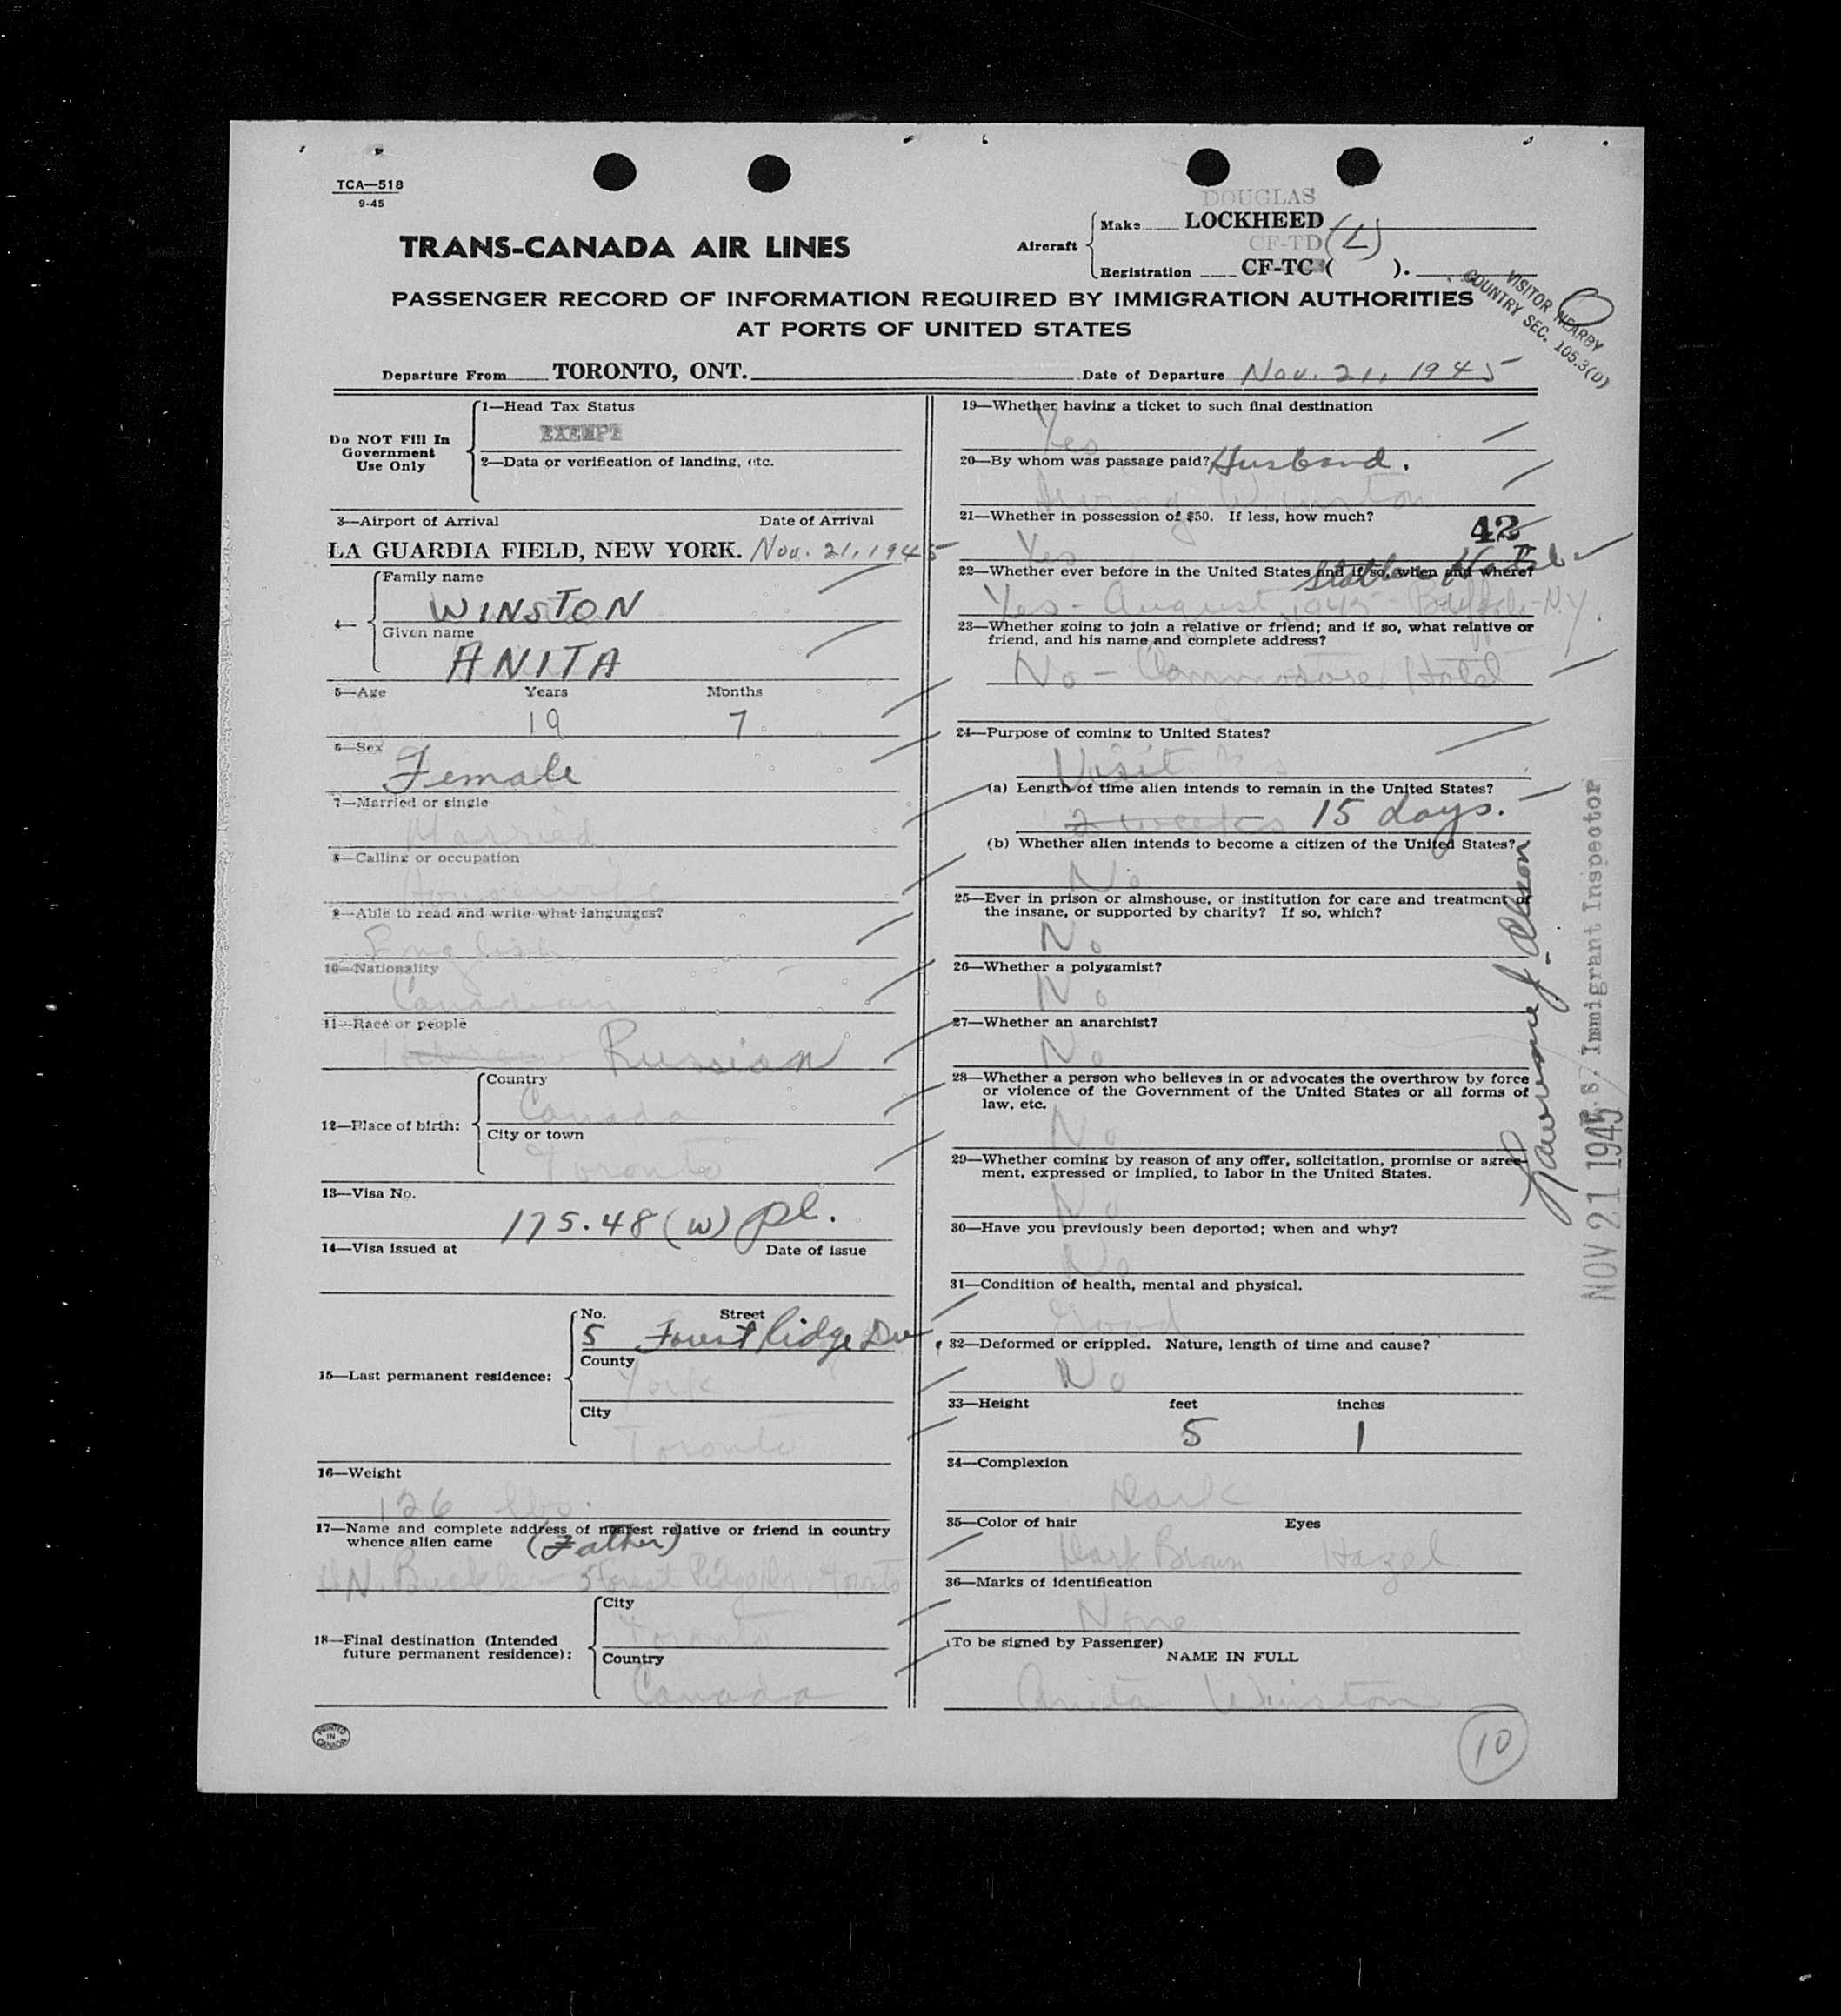 TCA—518
9-45
DOUGLAS
Make LOCKHEED
CF-TD (L)
Aircraft
Registration CF-TC ( ).
TRANS-CANADA AIR LINES
VISITOR NEARBY
COUNTRY SEC. 105.3(D)
PASSENGER RECORD OF INFORMATION REQUIRED BY IMMIGRATION AUTHORITIES
AT PORTS OF UNITED STATES
Departure From TORONTO, ONT. Date of Departure Nov. 21, 1945
Do NOT Fill In
Government
Use Only
1—Head Tax Status
EXEMPT
2—Data or verification of landing, etc.
3—Airport of Arrival Date of Arrival
LA GUARDIA FIELD, NEW YORK. Nov. 21, 1945
4—
Family name
WINSTON
Given name
ANITA
5—Age Years Months
19 7
6—Sex
Female
7—Married or single
Married
8—Calling or occupation
Housewife
9—Able to read and write what languages?
English
10—Nationality
Canadian
11—Race or people
Hebrew Russian
12—Place of birth:
Country
Canada
City or town
Toronto
13—Visa No.
175.48 (W) Pl.
14—Visa issued at Date of issue
15—Last permanent residence:
No. Street
5 Forest Ridge Dr
County
York
City
Toronto
16—Weight
126 lbs.
17—Name and complete address of nearest relative or friend in country
whence alien came (Father)
5 Forest Ridge Dr.
18—Final destination (Intended
future permanent residence):
City
Toronto
Country
Canada
PRINTED
IN
CANADA
19—Whether having a ticket to such final destination
Yes
20—By whom was passage paid? Husband.
Irving Winston
21—Whether in possession of $50. If less, how much?
42
Yes
22—Whether ever before in the United States and if so, when and where?
Statler Hotel
Yes - August 1945 - Buffalo N.Y.
23—Whether going to join a relative or friend; and if so, what relative or
friend, and his name and complete address?
No - Commodore Hotel
24—Purpose of coming to United States?
Visit
(a) Length of time alien intends to remain in the United States?
2 weeks 15 days.
(b) Whether alien intends to become a citizen of the United States?
No
25—Ever in prison or almshouse, or institution for care and treatment of
the insane, or supported by charity? If so, which?
No
26—Whether a polygamist?
No
27—Whether an anarchist?
No
28—Whether a person who believes in or advocates the overthrow by force
or violence of the Government of the United States or all forms of
law, etc.
No
29—Whether coming by reason of any offer, solicitation, promise or agree-
ment, expressed or implied, to labor in the United States.
No
30—Have you previously been deported; when and why?
No
31—Condition of health, mental and physical.
Good
32—Deformed or crippled. Nature, length of time and cause?
No
33—Height feet inches
5 1
34—Complexion
Dark
35—Color of hair Eyes
Dark Brown Hazel
36—Marks of identification
None
(To be signed by Passenger)
NAME IN FULL
Anita Winston
10
Lawrence J.
U.S. Immigrant Inspector
NOV 21 1945